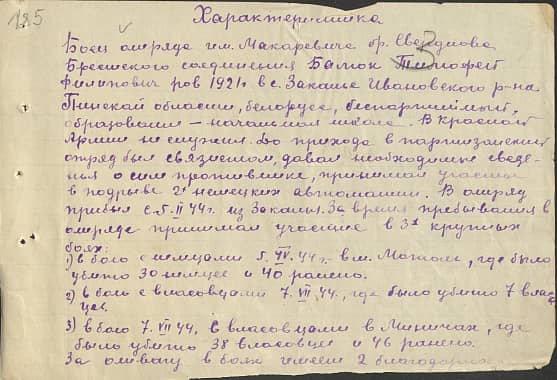 125
Характеристика
Боец отряда им. Макаревича бр. Свердлова
Брестского соединения Балюк Тимофей
Филипович ров 1921 г в с. Заканье Ивановского р-на
Пинской области, белорусс, беспартийный,
образование – начальная школа. В красной
Армии не служил. До прихода в партизанский
отряд был связистом, давал необходимые сведе-
ния о сил противника, принимал участие
в подрыве 2х немецких автомашин. В отряд
прибыл с 5.II 44 г. из Заканья. За время пребывания в
отряде принимал участие в 3х крупных
боях:
1) в бою с немцами 5.IV.44 г. в м. Мотоль, где было
убито 30 немцев и 40 ранено.
2) в бою с власовцами 7.VII 44 г., где было убито 7 влас
цев.
3) в бою 7.VII 44, с власовцами в Миничах, где
было убито 38 власовцев и 46 ранено.
За отвагу в боях имеет 2 благодарно